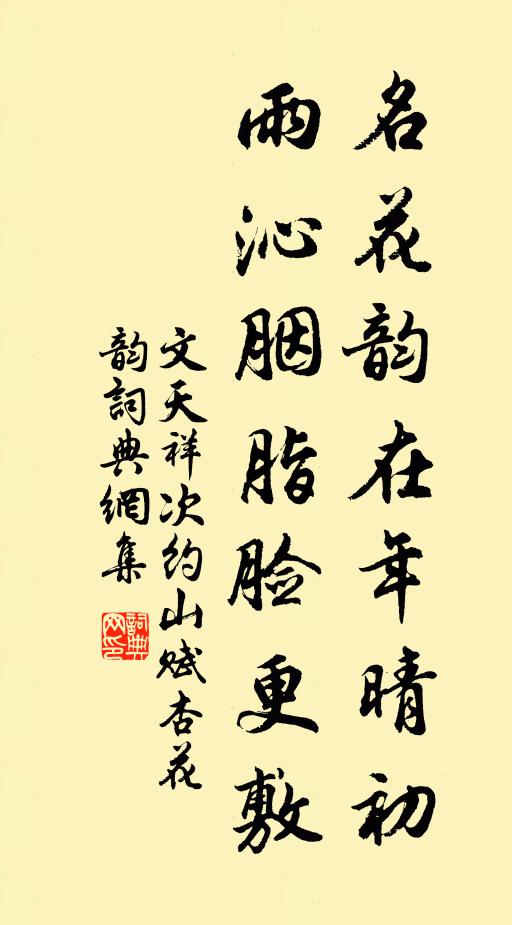 名花韵在年晴初
雨沁胭脂脸更敷
文天祥次约山赋杏花
韵詞典網集
詞典网印